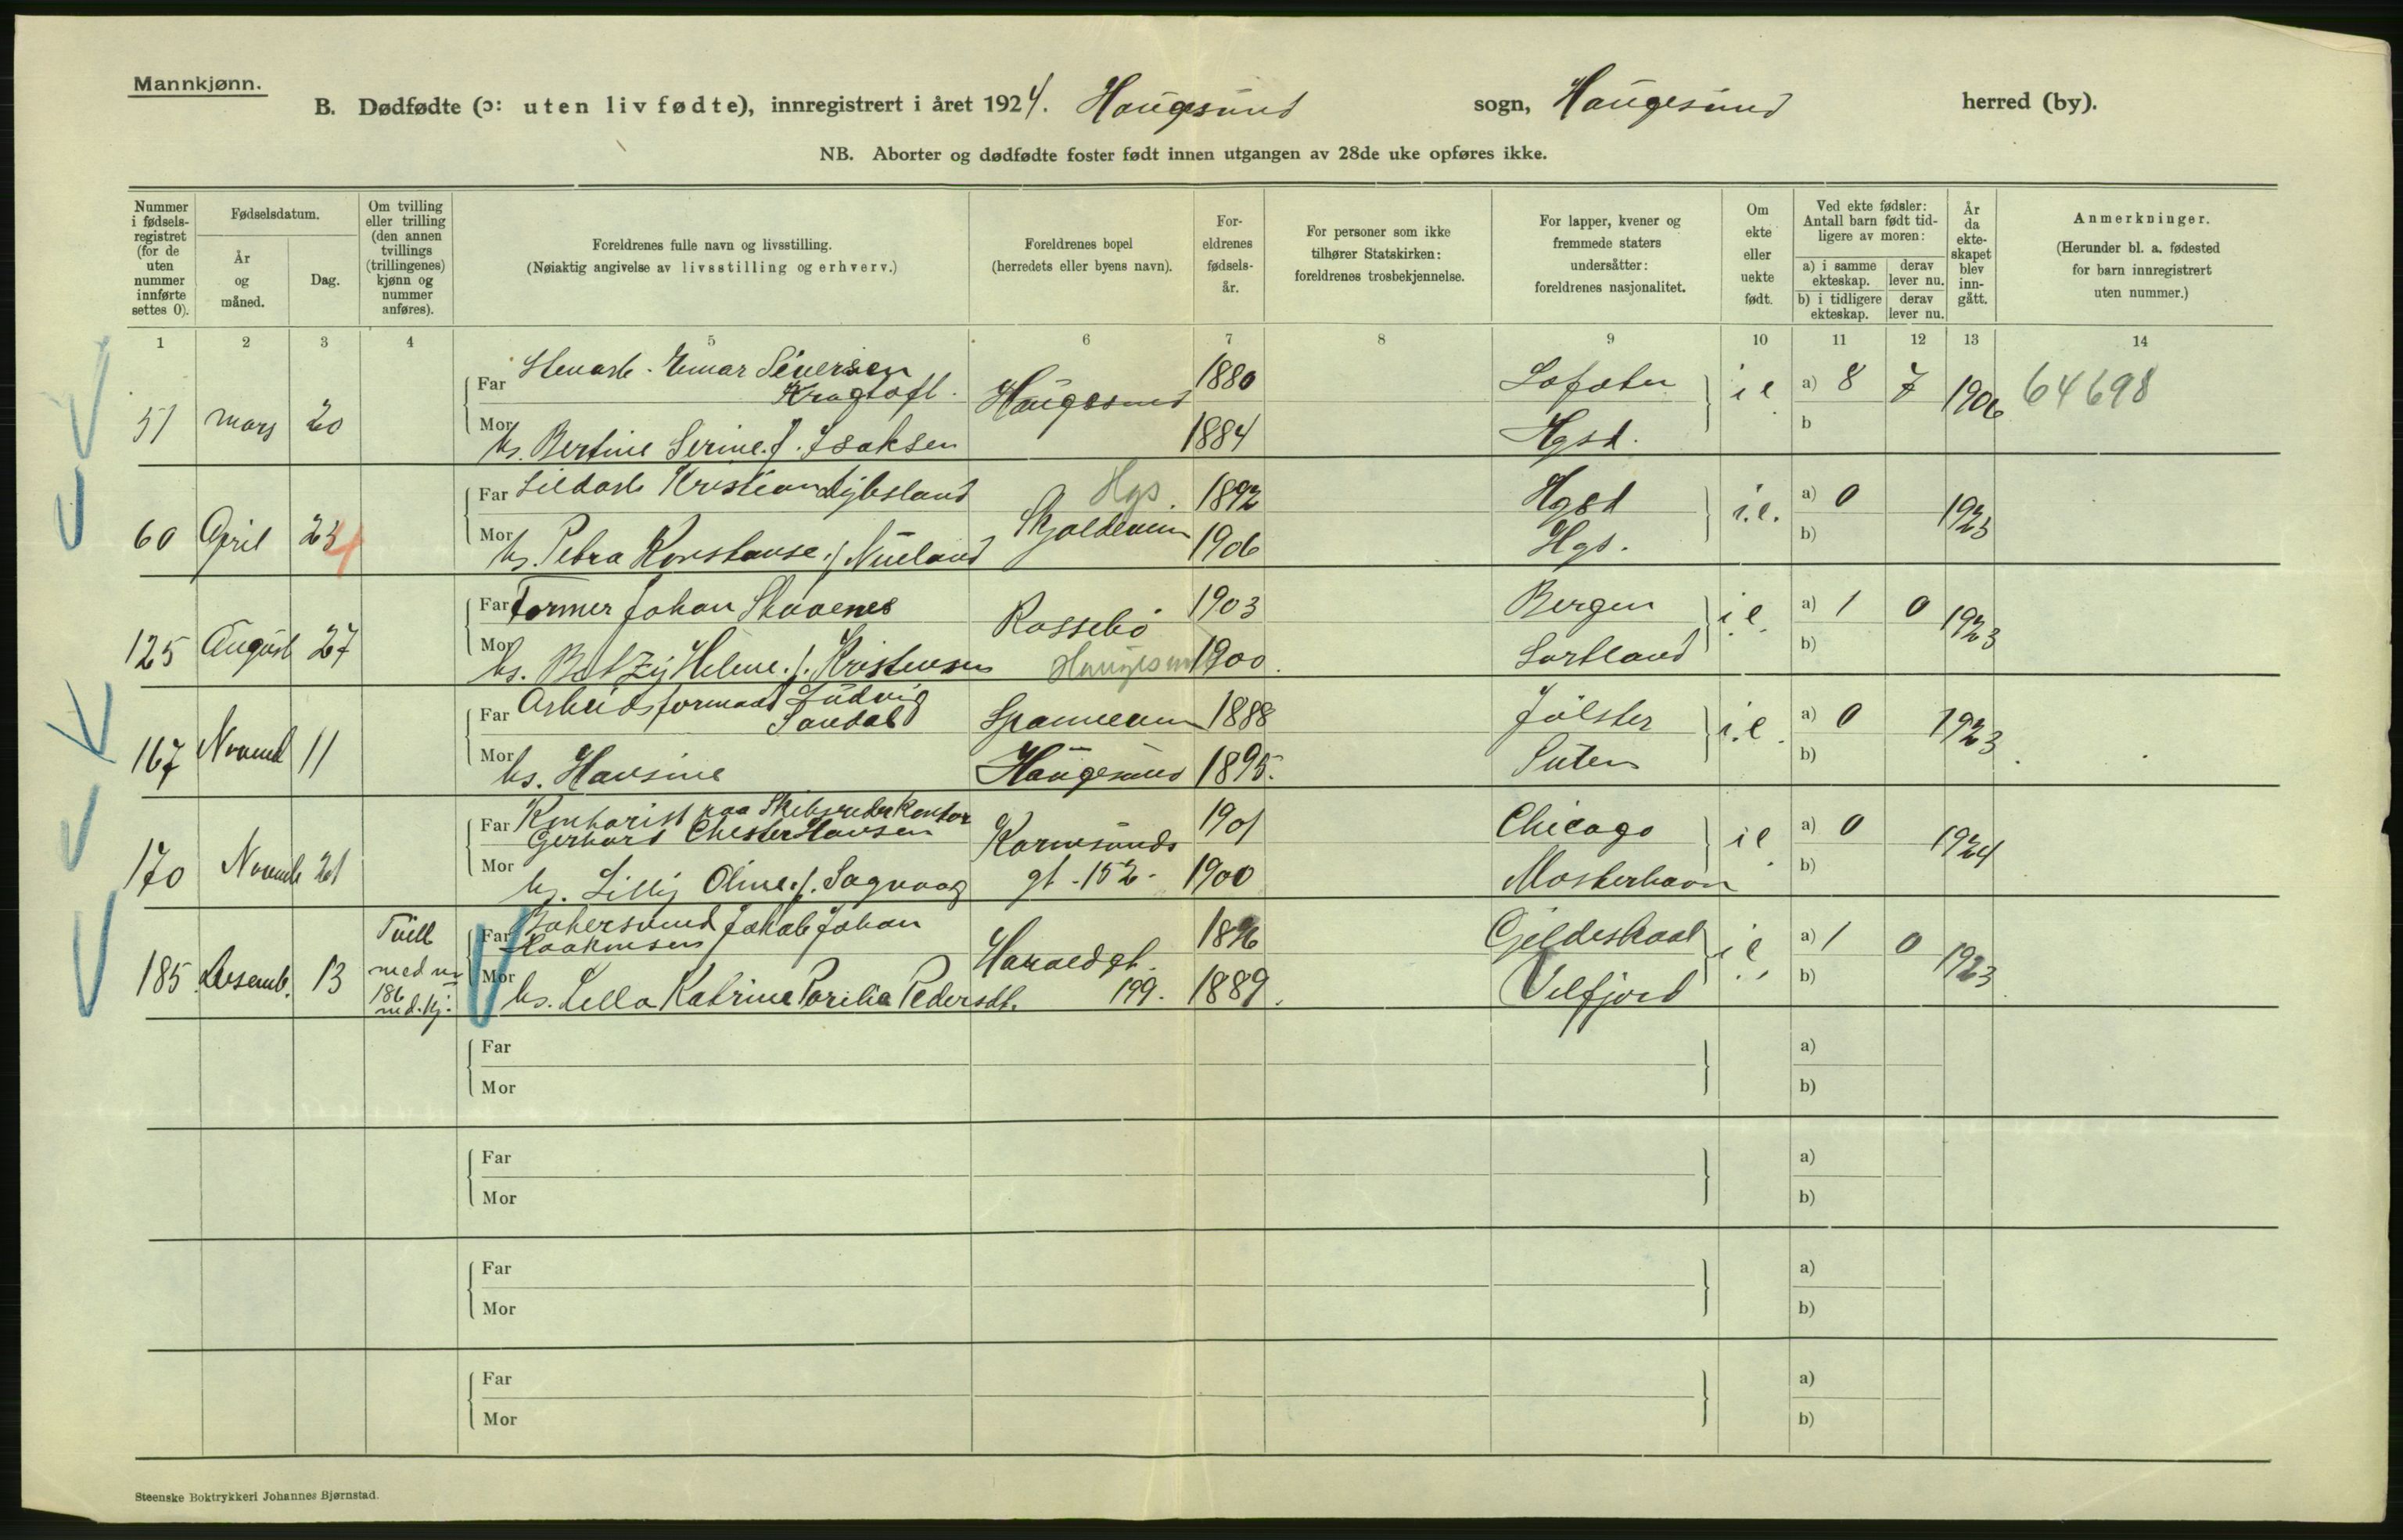 Mannkjønn.
B. Dødfødte (ɔ: uten liv fødte), innregistrert i året 1924. Haugesund sogn, Haugesund herred (by).
NB. Aborter og dødfødte foster født innen utgangen av 28de uke opføres ikke.
Nummer i fødsels-registret (for de uten nummer innførte settes 0).
Fødselsdatum.
År og måned.
Dag.
Om tvilling eller trilling (den annen tvillings (trillingenes) kjønn og nummer anføres).
Foreldrenes fulle navn og livsstilling.
(Nøiaktig angivelse av livsstilling og erhverv.)
Foreldrenes bopel
(herredets eller byens navn).
For-eldrenes fødsels-år.
For personer som ikke tilhører Statskirken: foreldrenes trosbekjennelse.
For lapper, kvener og fremmede staters undersåtter: foreldrenes nasjonalitet.
Om ekte eller uekte født.
Ved ekte fødsler: Antall barn født tid-ligere av moren:
a) i samme ekteskap. derav lever nu.
b) i tidligere ekteskap. derav lever nu.
År da ekte-skapet blev inn-gått.
Anmerkninger.
(Herunder bl. a. fødested for barn innregistrert uten nummer.)
1 2 3 4 5 6 7 8 9 10 11 12 13 14
Far Einar Siversen Kragtoft. 1880 Lofoten
51 mars 20 Haugesund i e a) 8 7 1906 64698
Mor hs. Bertine Serine f. Isaksen 1884 Hgsd. b
Far Kristian 1892 Hgsd
60 April 23 4 Hgs. i.e. a) 0 1923
Mor hs. Petra Konstanse f. 1906 Hgs. b)
Far Former Johan Skaanes 1903 Bergen
125 August 27 Rossebø Haugesund i.e. a) 1 0 1923
Mor hs. Betzy Helene f. Kristensen 1900. Sortland b)
Far Arbeidsformand Ludvig Sandal 1888 Jølster
167 Novemb 11 Haugesund i.e. a) 0 1923
Mor hs. Hansine 1895. b)
Far Kontorist paa Skibsrederkontor Gerhard Chester Hansen 1901 Chicago
170 Novemb 21 Karmsunds gt. 152. i e a) 0 1924
Mor hs. Lilly Oline f. Sagvaag 1900 Mosterhavn b)
Far Jakob Johan Haakonsen Gildeskaal
185 Desemb. 13 Tvill med nr 186 Haraldgt. 199. i e a) 1 0 1923
Mor hs. Lella Katrine Pedersdt. 1889. Velfjord b)
Far a)
Mor b)
Far a)
Mor b)
Far a)
Mor b)
Far a)
Mor b)
Steenske Boktrykkeri Johannes Bjørnstad.